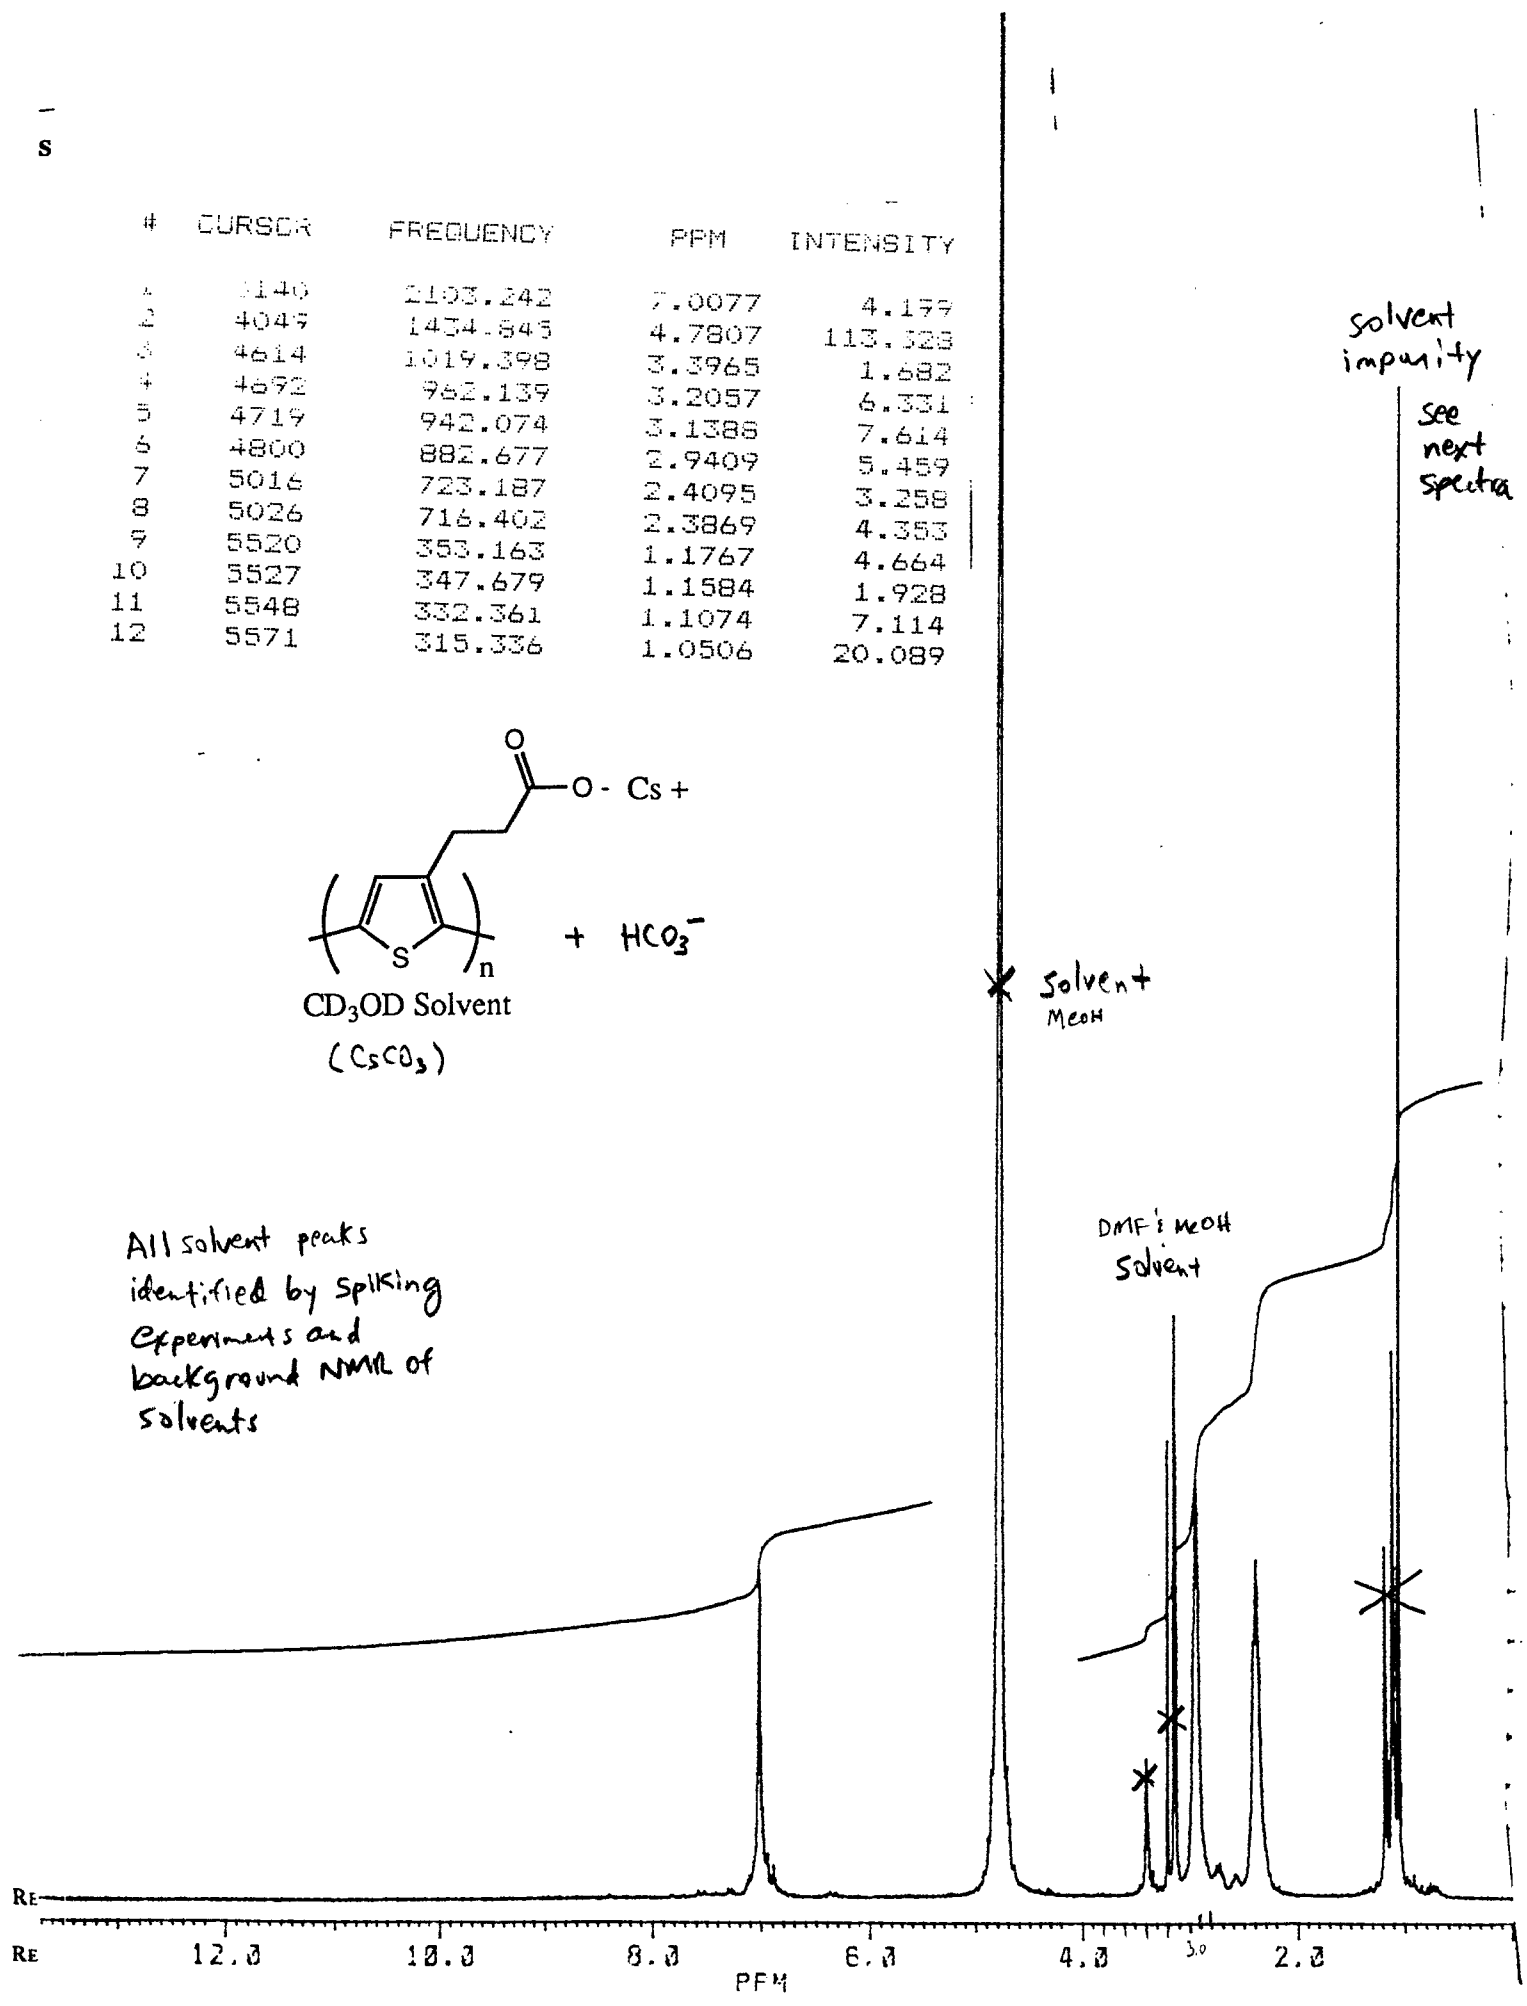 S
# CURSOR FREQUENCY PPM INTENSITY
1 3140 2103.242 7.0077 4.199
2 4049 1434.845 4.7807 113.328
3 4614 1019.398 3.3965 1.682
4 4692 962.139 3.2057 6.331
5 4719 942.074 3.1388 7.614
6 4800 882.677 2.9409 5.459
7 5016 723.187 2.4095 3.258
8 5026 716.402 2.3869 4.353
9 5520 353.163 1.1767 4.664
10 5527 347.679 1.1584 1.928
11 5548 332.361 1.1074 7.114
12 5571 315.336 1.0506 20.089
solvent
impurity
see
next
spectra
O
O - Cs +
S
n
+ HCO3−
CD3OD Solvent
(CsCO3)
solvent
MeOH
DMF & MeOH
Solvent
All solvent peaks
identified by spiking
experiments and
background NMR of
solvents
RE
RE
12.0 10.0 8.0 6.0 4.0 3.0 2.0
PPM